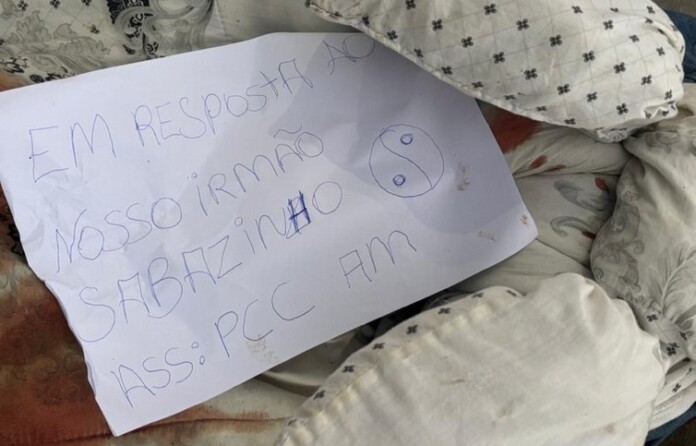 EM RESPOSTA AO
NOSSO IRMÃO
SABAZINHO
ASS: PCC AM